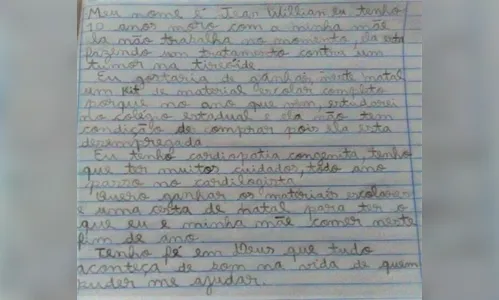 Meu nome é Jean Willian eu tenho
10 anos moro com a minha mãe
ela não trabalha no momento, ela está
fazendo um tratamento contra um
tumor na tireoide
Eu gostaria de ganhar, neste natal
um kit de material escolar completo
porque no ano que vem, estudarei
no colégio estadual e ela não tem
condição de comprar pois ela esta
desempregada
Eu tenho cardiopatia congenita, tenho
que ter muitos cuidados, todo ano
passo no cardiologista.
Quero ganhar os materiais escolares
e uma cesta de natal para ter o
que eu e minha mãe comer neste
fim de ano.
Tenho fé em Deus que tudo
aconteça de bom na vida de quem
puder me ajudar.